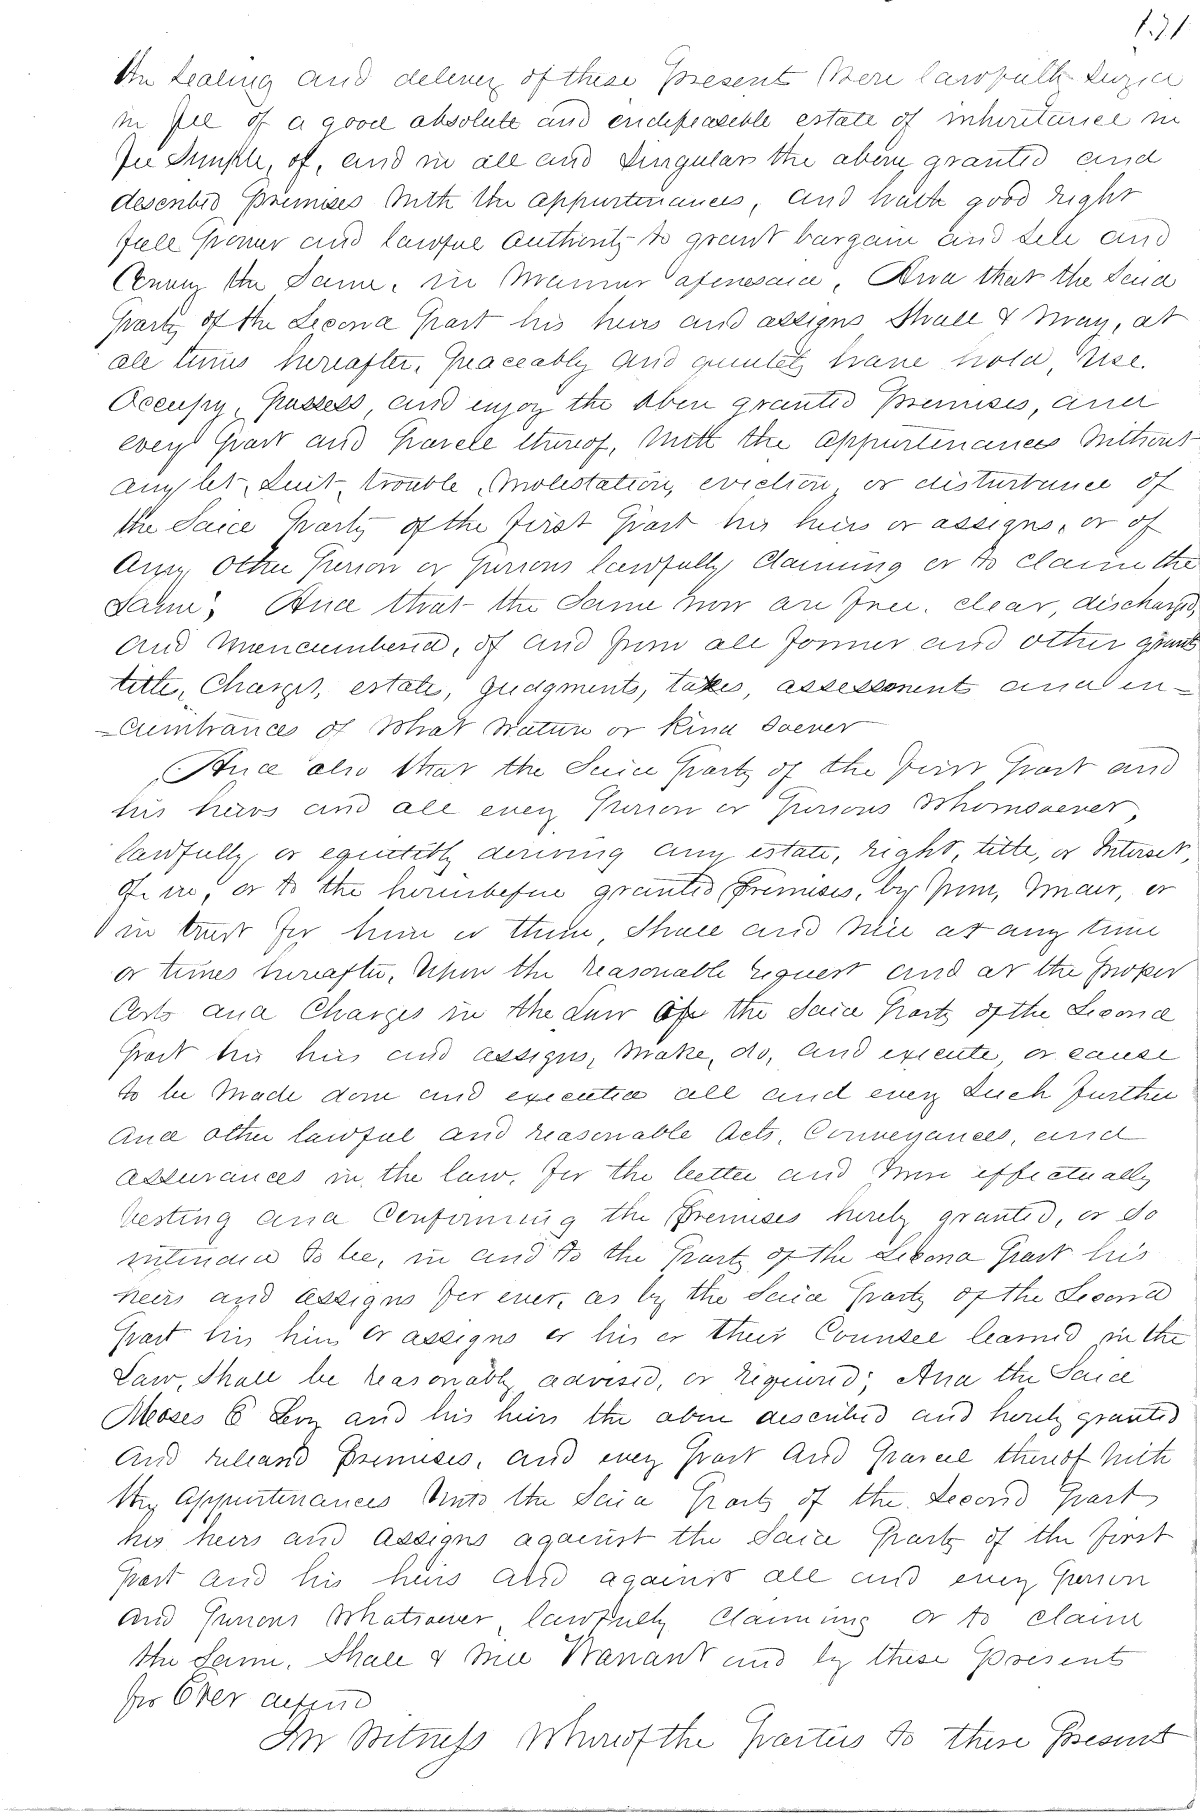 171
the Sealing and delivery of these Presents Were lawfully Seized
in fee of a good absolute and indefeasible estate of inheritance in
fee Simple, of, and in all and Singular the above granted and
described Premises With the appurtenances, and hath good right
full Power and lawful Authority to grant bargain and Sell and
Convey the Same, in Manner aforesaid, And that the Said
Party of the Second Part his heirs and assigns Shall & May, at
all times hereafter, Peaceably and quietly have hold, Use.
Occupy, Possess, and enjoy the above granted Premises, and
every Part and Parcell thereof, With the appurtenances Without
any let, Suit, trouble, Molestation, eviction, or disturbance of
the Said Party of the first Part his heirs or assigns, or of
Any Other Person or Persons lawfully Claiming or to claim the
Same; And that the Same now are free. clear, discharged,
and Unencumbered, of and from all former and other grants
title, Charges, estate, Judgments, taxes, assessments and en=
=cumbrances of What Nature or Kind Soever
And also that the Said Party of the first Part and
his heirs and all every Person or Persons Whomsoever,
lawfully or equitably deriving any estate, right, title, or Interest,
Of in, or to the hereinbefore granted Premises, by from, Under, or
in trust for him or them, Shall and Will at any time
or times hereafter, Upon the reasonable request and at the Proper
Costs and Charges in the Law Of the Said Party of the Second
Part his heirs and assigns, Make, do, and execute, or cause
to be Made done and executed all and every Such further
And other lawful and reasonable Acts, Conveyances, and
assurances in the law, for the better and More effectually
Vesting and Confirming the Premises hereby granted, or So
intended to be, in and to the Party of the Second Part his
heirs and assigns for ever, as by the Said Party of the Second
Part his heirs or assigns or his or their Counsel learned in the
Law, Shall be reasonably advised, or required; And the Said
Moses E Levy and his heirs the above described and hereby granted
and released Premises, and every Part and Parcel thereof With
the Appurtenances Unto the Said Party of the Second Part
his heirs and assigns against the Said Party of the first
Part and his heirs and against all and every Person
and Persons Whatsoever, lawfully Claiming or to claim
the Same, Shall & Will Warrant and by these Presents
for Ever defend
In Witness Whereof the Parties to these Presents